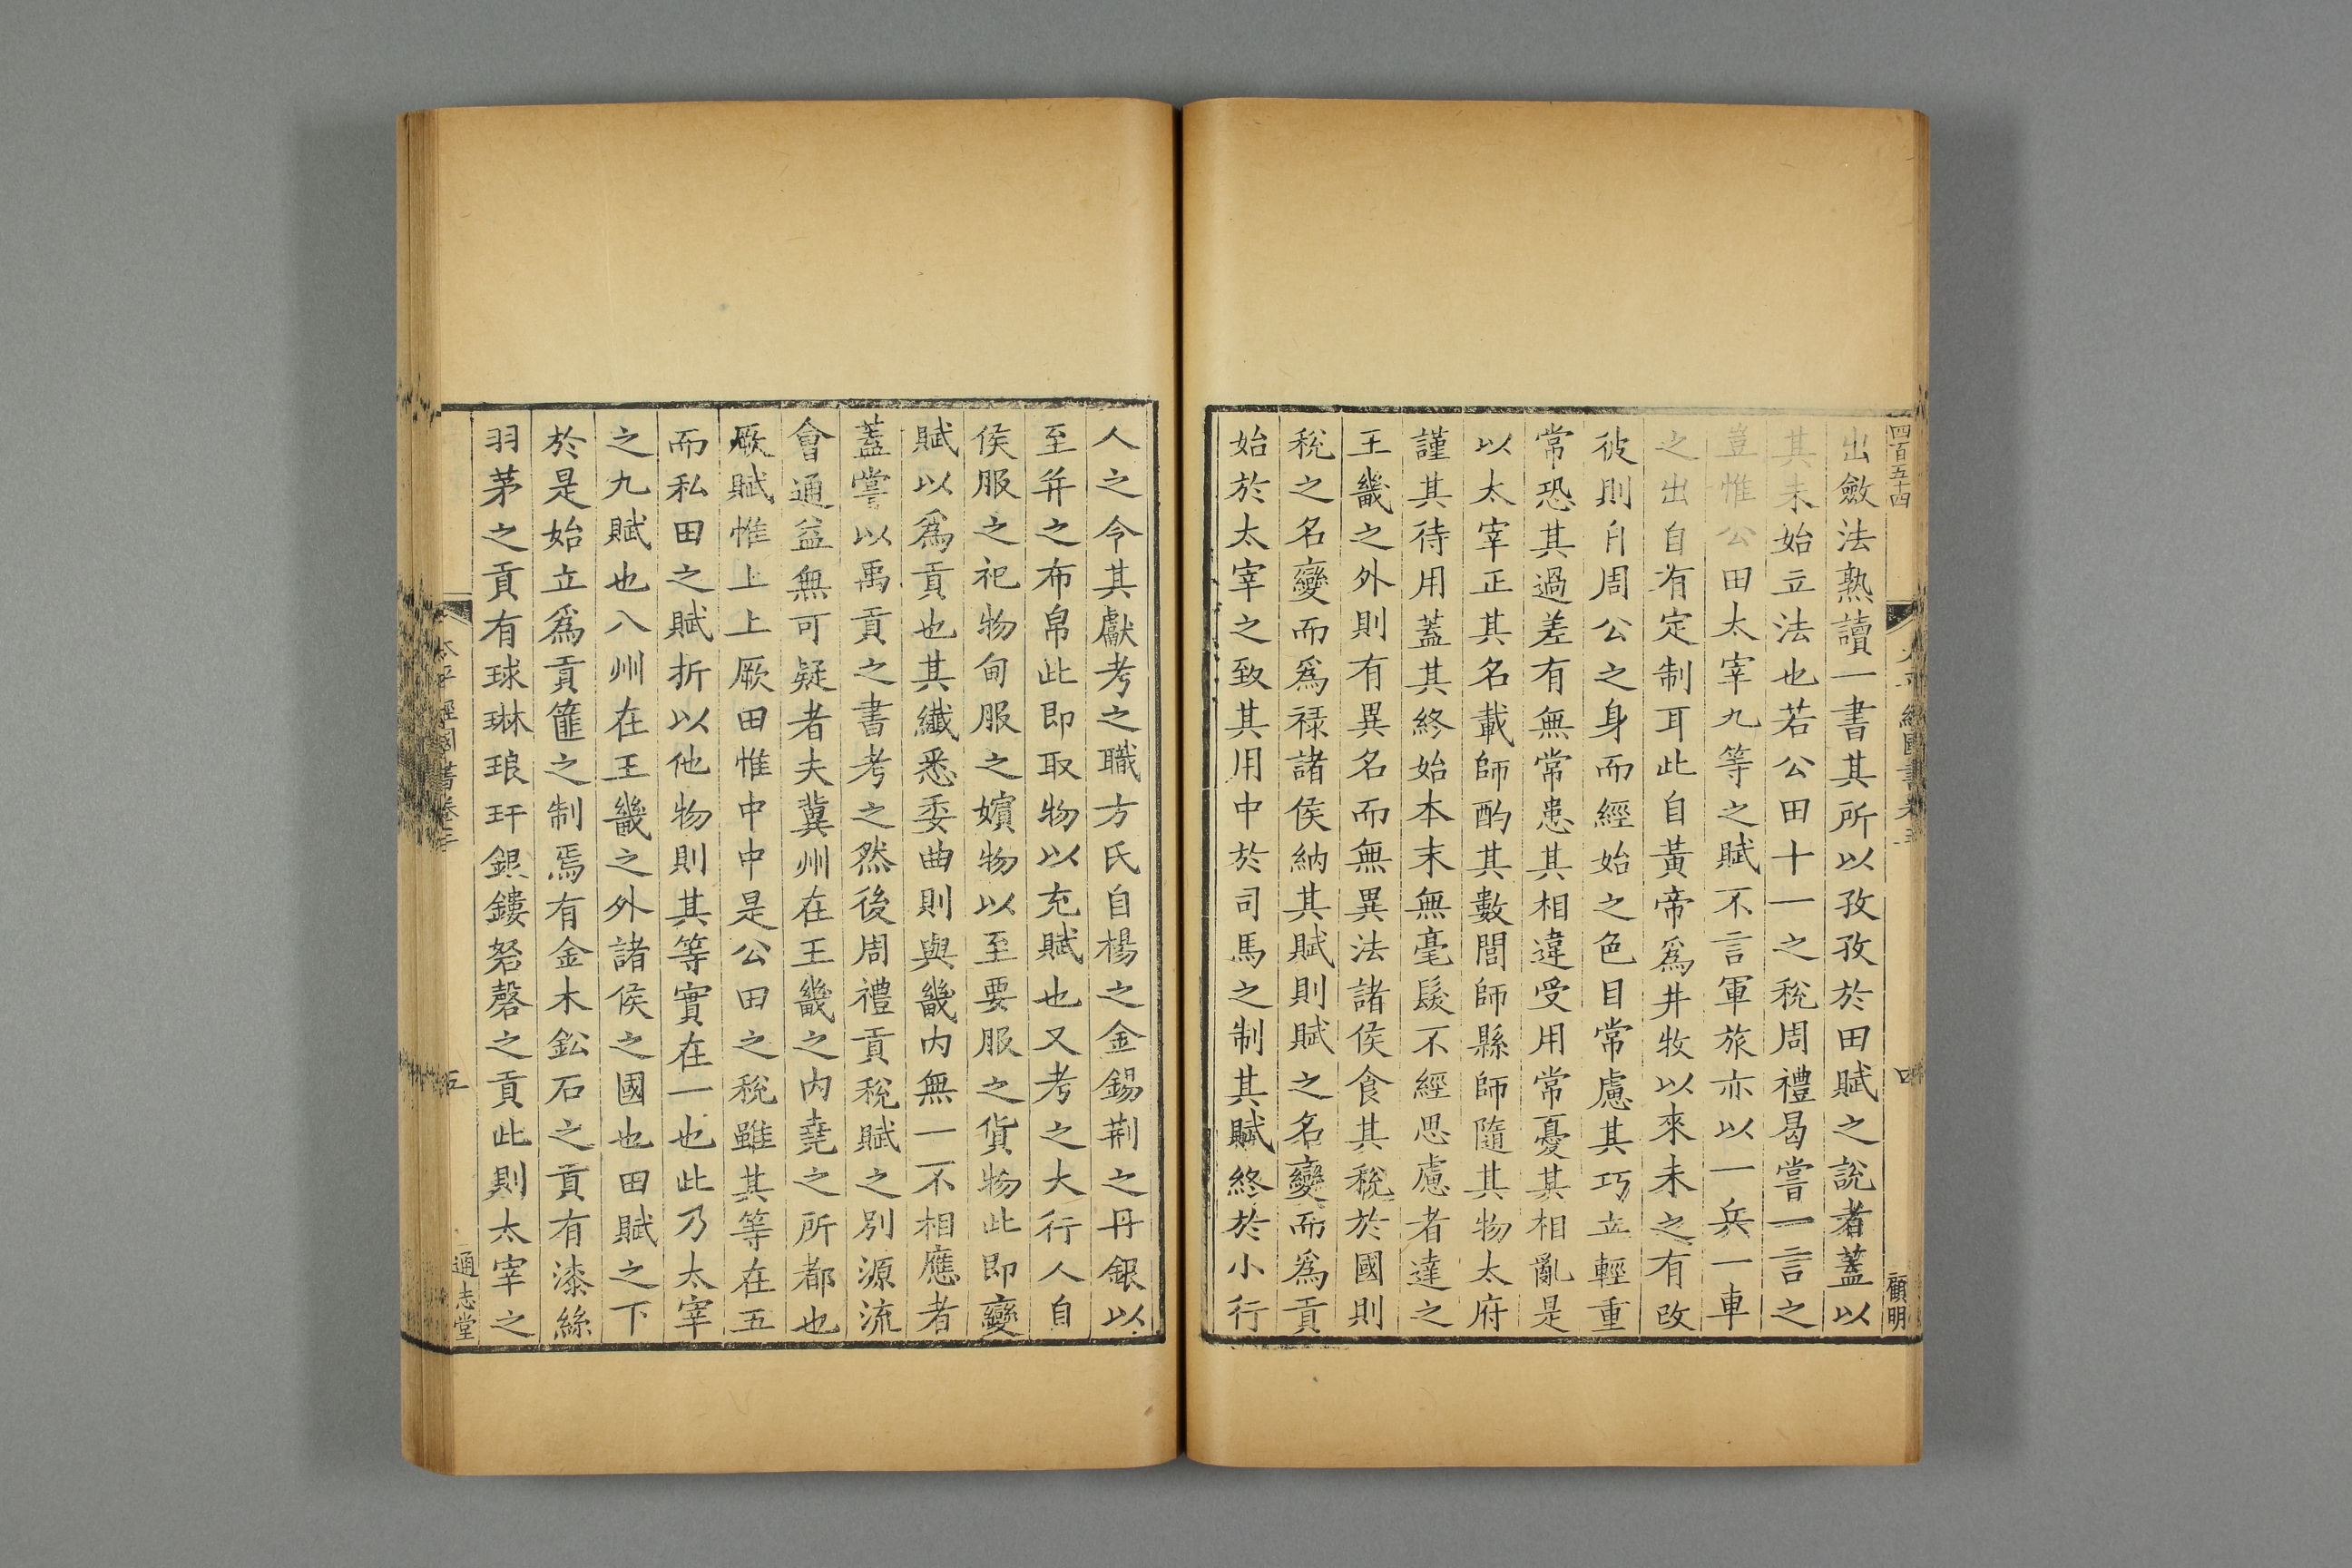 四百五十四
顧明
出斂法熟讀一書其所以孜孜於田賦之說者蓋以
其未始立法也若公田十一之稅周禮曷嘗一言之
豈惟公田太宰九等之賦不言軍旅亦以一兵一車
之出自有定制耳此自黃帝爲井牧以來未之有改
彼則自周公之身而經始之色目常慮其巧立輕重
常恐其過差有無常患其相違受用常憂其相亂是
以太宰正其名載師酌其數閭師縣師隨其物太府
謹其待用蓋其終始本末無毫髮不經思慮者達之
王畿之外則有異名而無異法諸侯食其稅於國則
稅之名變而爲祿諸侯納其賦則賦之名變而爲貢
始於太宰之致其用中於司馬之制其賦終於小行
人之令其獻考之職方氏自楊之金錫荆之丹銀以
至并之布帛此即取物以充賦也又考之大行人自
侯服之祀物甸服之嬪物以至要服之貨物此即變
賦以爲貢也其纖悉委曲則與畿内無一不相應者
蓋嘗以禹貢之書考之然後周禮貢稅賦之别源流
會通益無可疑者夫冀州在王畿之内堯之所都也
厥賦惟上上厥田惟中中是公田之稅雖其等在五
而私田之賦折以他物則其等實在一也此乃太宰
之九賦也八州在王畿之外諸侯之國也田賦之下
於是始立爲貢篚之制焉有金木鈆石之貢有漆絲
羽茅之貢有球琳琅玕銀鏤砮磬之貢此則太宰之
太平經國書卷三
五
通志堂